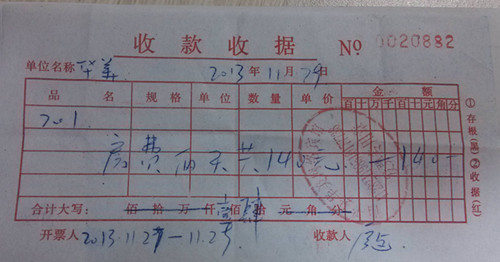 收款收据 № 0020882
单位名称 华美 2013年11月29日
品名 规格 单位 数量 单价 金额
百十万千百十元角分
701
房费两天共140元. 140-
合计大写: 佰拾万仟壹佰肆拾元角分
开票人 2013.11.27—11.29 收款人
①存根(黑)②收据(红)